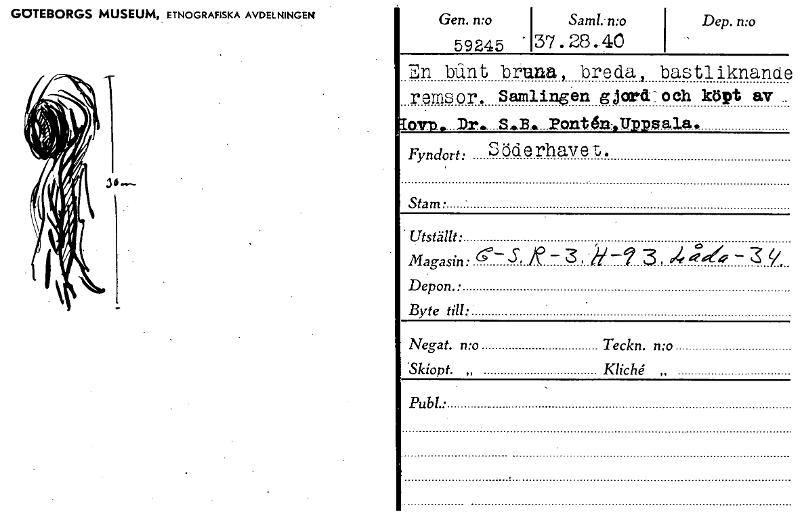 GÖTEBORGS MUSEUM, ETNOGRAFISKA AVDELNINGEN
Gen. n:o Saml. n:o Dep. n:o
59245 37.28.40
En bunt bruna, breda, bastliknande
remsor. Samlingen gjord och köpt av
Hovp. Dr. S.B. Pontén, Uppsala.
Fyndort: Söderhavet.
Stam:
Utställt:
Magasin: G-S. R-3. H-93. Låda-34.
Depon.:
Byte till:
Negat. n:o Teckn. n:o
Skiopt. „ Kliché „
Publ.: